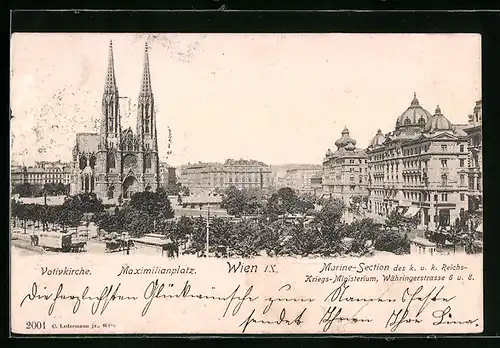 Votivkirche. Maximilianplatz. Wien IX. Marine-Section des k. u. k. Reichs-
Kriegs-Ministerium, Währingerstrasse 6 u. 8.
Die herzlichsten Glückwünsche zu Namensfeste
sendet Ihnen Ihre Lina.
2001 C. Ledermann jr., Wien